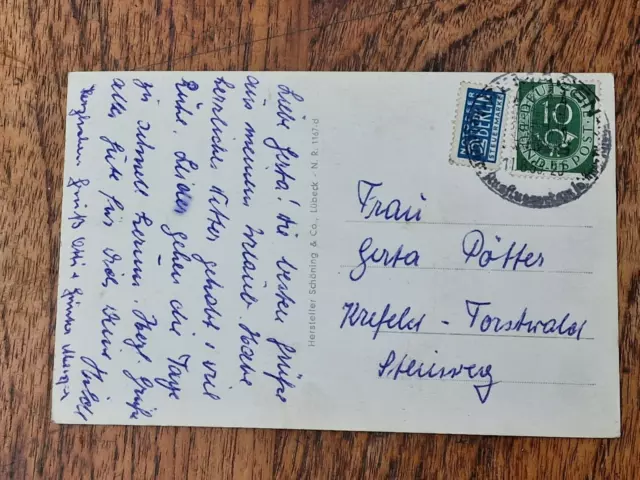 Liebe Gerta! Die besten Grüße
aus meinem Urlaub. Habe
herrliches Wetter gehabt u. viel
Ruhe. Leider gehen die Tage
zu schnell herum. Herzl. Grüße
alles Gute für Dich, Deine
Herzlichen Gruß
Hersteller Schöning & Co., Lübeck - N. R. 1167 d
NOTOPFER
2 BERLIN
STEUERMARKE
10
DEUTSCHE BUNDESPOST
Frau
Gerta Pötter
Krefeld - Forstwald
Steinweg